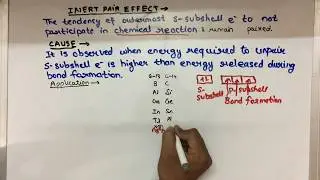 INERT PAIR EFFECT →
The tendency of outermost s-subshell e⁻ to not
participate in chemical reaction & remain paired.
CAUSE →
It is observed when energy required to unpair
s-subshell e⁻ is higher than energy released during
bond formation.
Application →
G-13 G-14
B C
Al Si
Ga Ge
In Sn
Tl
s-
subshell
p-subshell
Bond formation